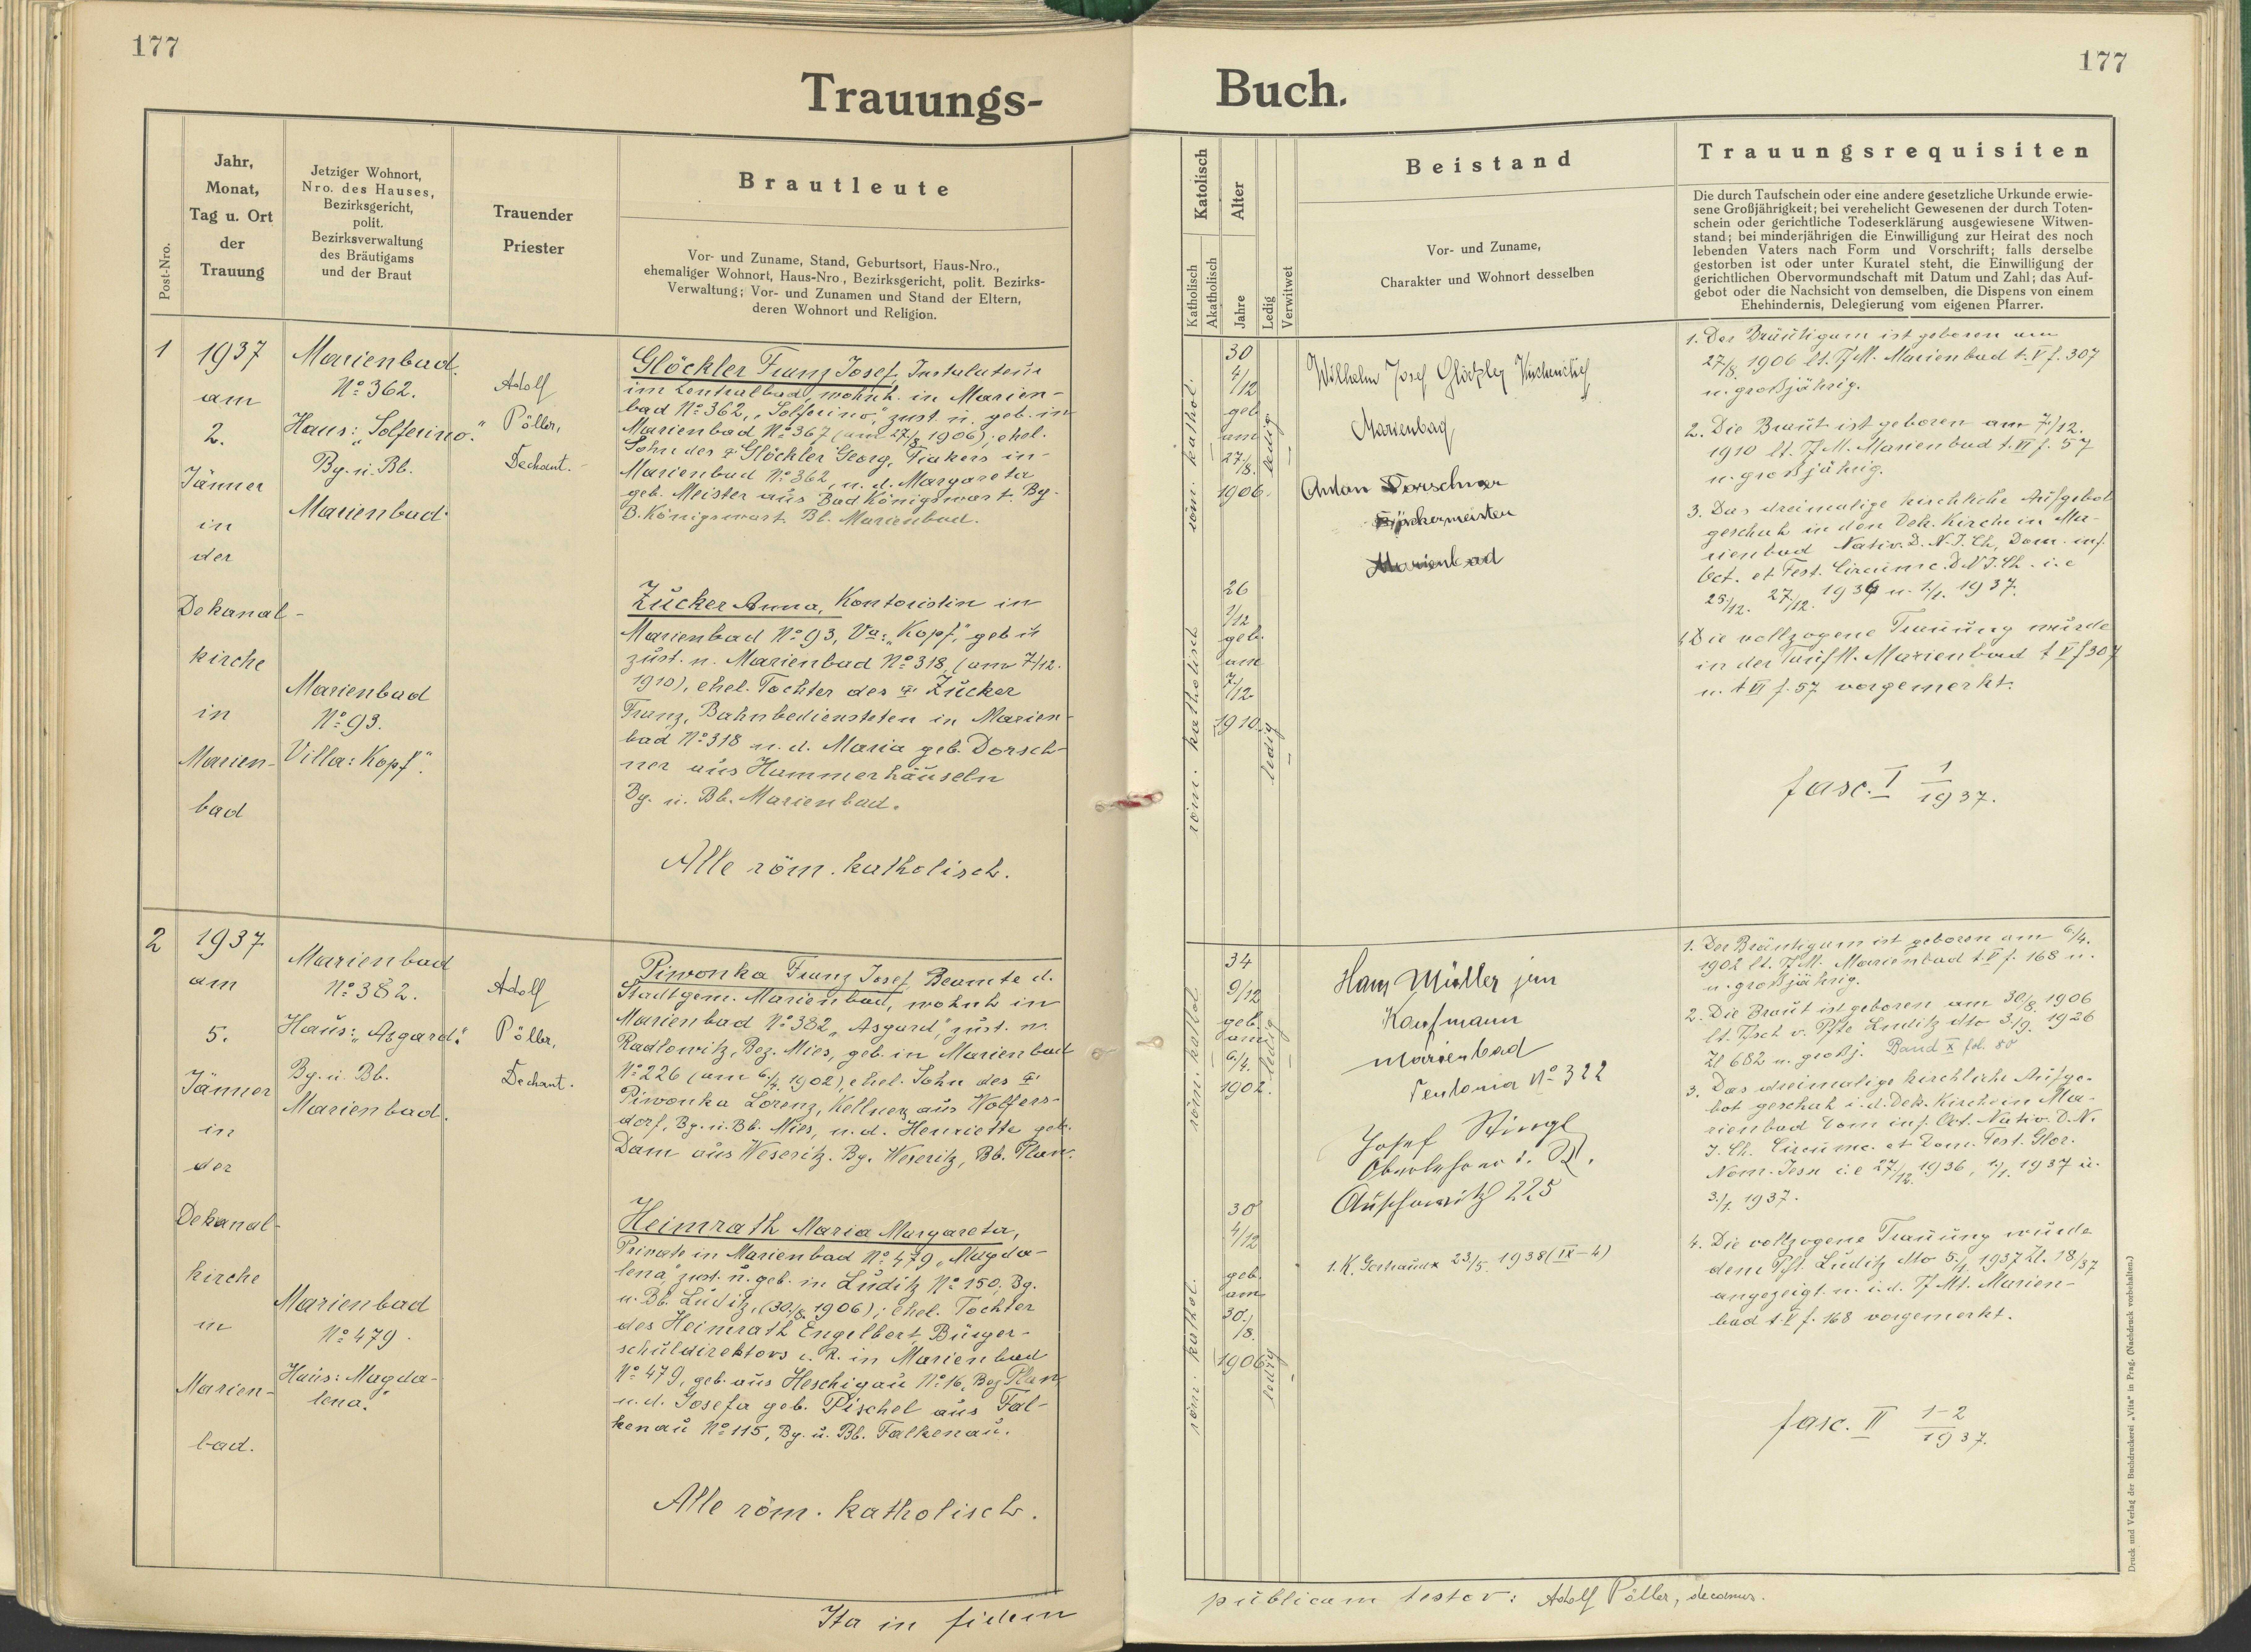 177
177
Trauungs-
Buch.
Post-Nro.
Jahr,
Monat,
Tag u. Ort
der
Trauung
Jetziger Wohnort,
Nro. des Hauses,
Bezirksgericht,
polit.
Bezirksverwaltung
des Bräutigams
und der Braut
Trauender
Priester
Brautleute
Vor- und Zuname, Stand, Geburtsort, Haus-Nro.,
ehemaliger Wohnort, Haus-Nro., Bezirksgericht, polit. Bezirks-
Verwaltung; Vor- und Zunamen und Stand der Eltern,
deren Wohnort und Religion.
1
1937
am
2.
Jänner
in
der
Dekanal-
kirche
in
Marien-
bad
Marienbad.
No 362.
Haus: „Solferino."
Bg. u. Bb.
Marienbad.
Marienbad
No 93.
Villa: Kopf".
Adolf
Pöller,
Dechant.
Glöckler Franz Josef, Instalateur
im Zentralbad, wohnh. in Marien-
bad No 362, „Solferino," zust. u. geb. in
Marienbad No 367 (am 27/8 1906); ehel.
Sohn des Glöckler Georg, Fiakers in
Marienbad No 362, u. d. Margareta
geb. Meister aus Bad Königswart. Bg.
B. Königswart. Bb. Marienbad.
Zucker Anna, Kontoristin in
Marienbad No 93, Va: „Kopf", geb u
zust. n. Marienbad No 318, (am 7/12.
1910), ehel. Tochter des Zucker
Franz, Bahnbediensteten in Marien-
bad No 318 u. d. Maria geb. Dorsch-
ner aus Hammerhäuseln
Bg. u. Bb. Marienbad.
Alle röm. katholisch.
2
1937
am
5.
Jänner
in
der
Dekanal-
kirche
in
Marien-
bad.
Marienbad
No 382.
Haus: „Asgard."
Bg. u. Bb.
Marienbad.
Marienbad
No 479.
Haus: Magda-
lena."
Adolf
Pöller,
Dechant.
Piwonka Franz Josef, Beamte d.
Stadtgem. Marienbad, wohnh in
Marienbad No 382 „Asgard", zust. n.
Radlowitz, Bez. Mies, geb. in Marienbad
No 226 (am 6./4. 1902), ehel. Sohn des
Piwonka Lorenz, Kellners aus Wolfers-
dorf, Bg. u. Bb. Mies, u. d. Henriette geb.
Dam aus Weseritz. Bg. Weseritz, Bb. Plan.
Heimrath Maria Margareta,
Private in Marienbad No 479 „Magda-
lena", zust. u. geb. in Luditz No 150, Bg.
u. Bb. Luditz, (30./8. 1906); ehel. Tochter
des Heimrath Engelbert, Bürger-
schuldirektors i. R. in Marienbad
No 479, geb. aus Heschigau No 16, Bez Plan,
u. d. Josefa geb. Pischel aus Fal-
kenau No 115, Bg. u. Bb. Falkenau.
Alle röm. katholisch.
Ita in fidem
Katolisch
Katholisch
Akatholisch
Alter
Jahre
Ledig
Verwitwet
Beistand
Vor- und Zuname,
Charakter und Wohnort desselben
Trauungsrequisiten
Die durch Taufschein oder eine andere gesetzliche Urkunde erwie-
sene Großjährigkeit; bei verehelicht Gewesenen der durch Toten-
schein oder gerichtliche Todeserklärung ausgewiesene Witwen-
stand; bei minderjährigen die Einwilligung zur Heirat des noch
lebenden Vaters nach Form und Vorschrift; falls derselbe
gestorben ist oder unter Kuratel steht, die Einwilligung der
gerichtlichen Obervormundschaft mit Datum und Zahl; das Auf-
gebot oder die Nachsicht von demselben, die Dispens von einem
Ehehindernis, Delegierung vom eigenen Pfarrer.
röm. kathol.
30
4/12
geb
am
27/8.
1906.
ledig
röm. katholisch
26
1/12
geb.
am
7/12
1910.
ledig
Wilhelm Josef Glöckler
Marienbad
Anton Dorschner
Marienbad
1. Der Bräutigam ist geboren am
27/8. 1906 lt. Tf M. Marienbad t. V f. 307
u. großjährig.
2. Die Braut ist geboren am 7/12.
1910 lt. Tf M. Marienbad t. VI f. 57
u. großjährig.
3. Das dreimalige kirchliche Aufgebot
geschah in der Dek. Kirche in Ma-
rienbad Nativ. D. N. J. Ch, Dom. inf.
Oct. et Fest. Circumc. D N J. Ch. i. e
25./12. 27./12. 1936 u. 1./1. 1937.
4. Die vollzogene Trauung wurde
in der Taufm. Marienbad t V f 307
u. t VI f. 57 vorgemerkt.
fasc. I 1/1937.
röm. kathol
34
9/12
geb.
am
6./4.
1902.
ledig
röm. kathol.
30
4/12
geb.
am
30./8.
1906
ledig
Hans Müller jun
Kaufmann
Marienbad
Teutonia No 322
Josef Stingl
Oberlehrer i. R.
Auschowitz 225
1. K. 23/5. 1938 (IX-4)
1. Der Bräutigam ist geboren am 6./4.
1902 lt. Tf M. Marienbad t. V f. 168 u.
u. großjährig.
2. Die Braut ist geboren am 30/8. 1906
lt. Tfsch v. Pfte Luditz dto 3./9. 1926
Zl 682 u. großj. Band X fol. 80
3. Das dreimalige kirchliche Aufge-
bot geschah i. d. Dek. Kirche in Ma-
rienbad Dom inf. Oct. Nativ. D. N.
J. Ch. Circumc. et Dom. Fest. Glor.
Nom. Jesu i. e 27./12. 1936, 1./1. 1937 u.
3./1. 1937.
4. Die vollzogene Trauung wurde
dem Pft. Luditz dto 5./1. 1937 Zl. 18/37
angezeigt u. i. d. Tf Mt. Marien-
bad t. V f. 168 vorgemerkt.
fasc. II 1-2/1937.
publicam testor: Adolf Pöller, decanus.
Druck und Verlag der Buchdruckerei „Vita" in Prag. (Nachdruck vorbehalten.)